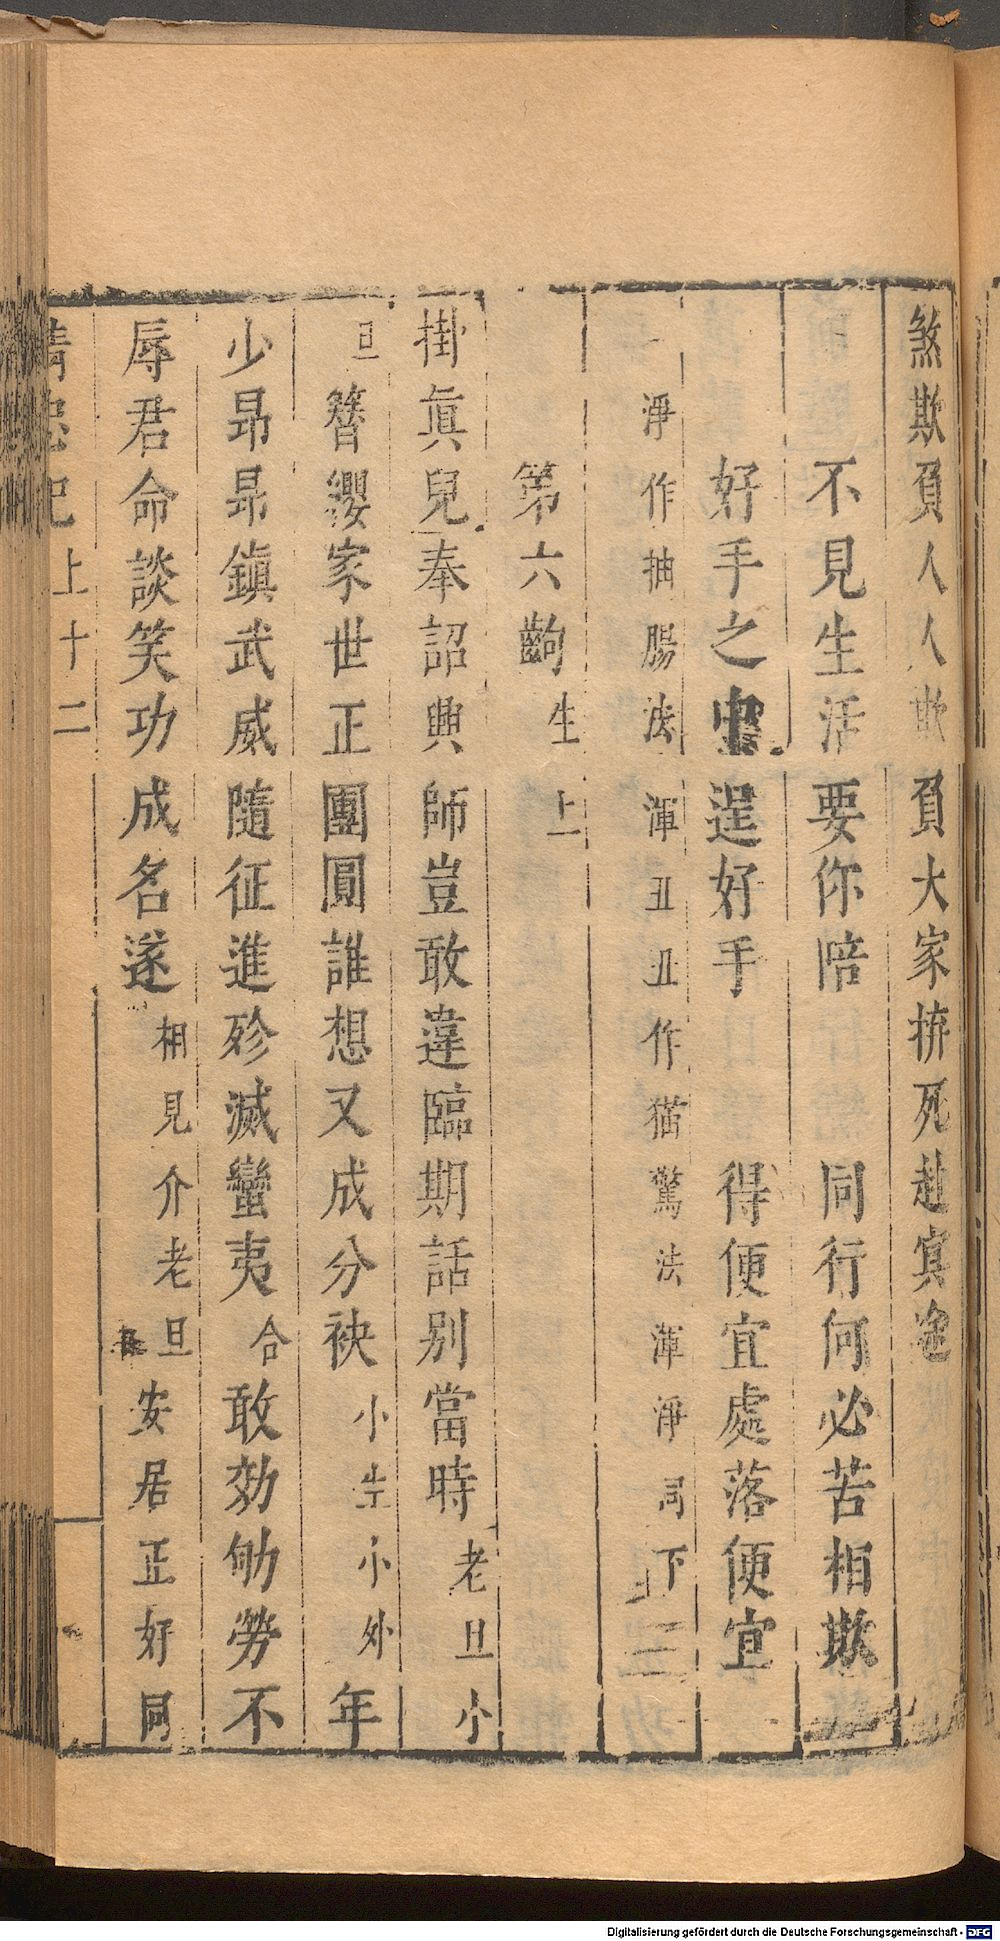 煞欺負人人欺負大家拚死赴冥途
不見生活要你陪　同行何必苦相欺
好手之中逞好手　得便宜處落便宜
淨作抽腸法渾丑丑作猫驚法渾淨同下
第六齣 生上
掛眞兒奉詔興師豈敢違臨期話别當時老旦小
旦簪纓家世正團圓誰想又成分袂小生小外年
少昂昂鎮武威隨征進殄滅蠻夷合敢効劬勞不
辱君命談笑功成名遂相見介老旦安居正好同
精忠記 上 十二
Digitalisierung gefördert durch die Deutsche Forschungsgemeinschaft - DFG